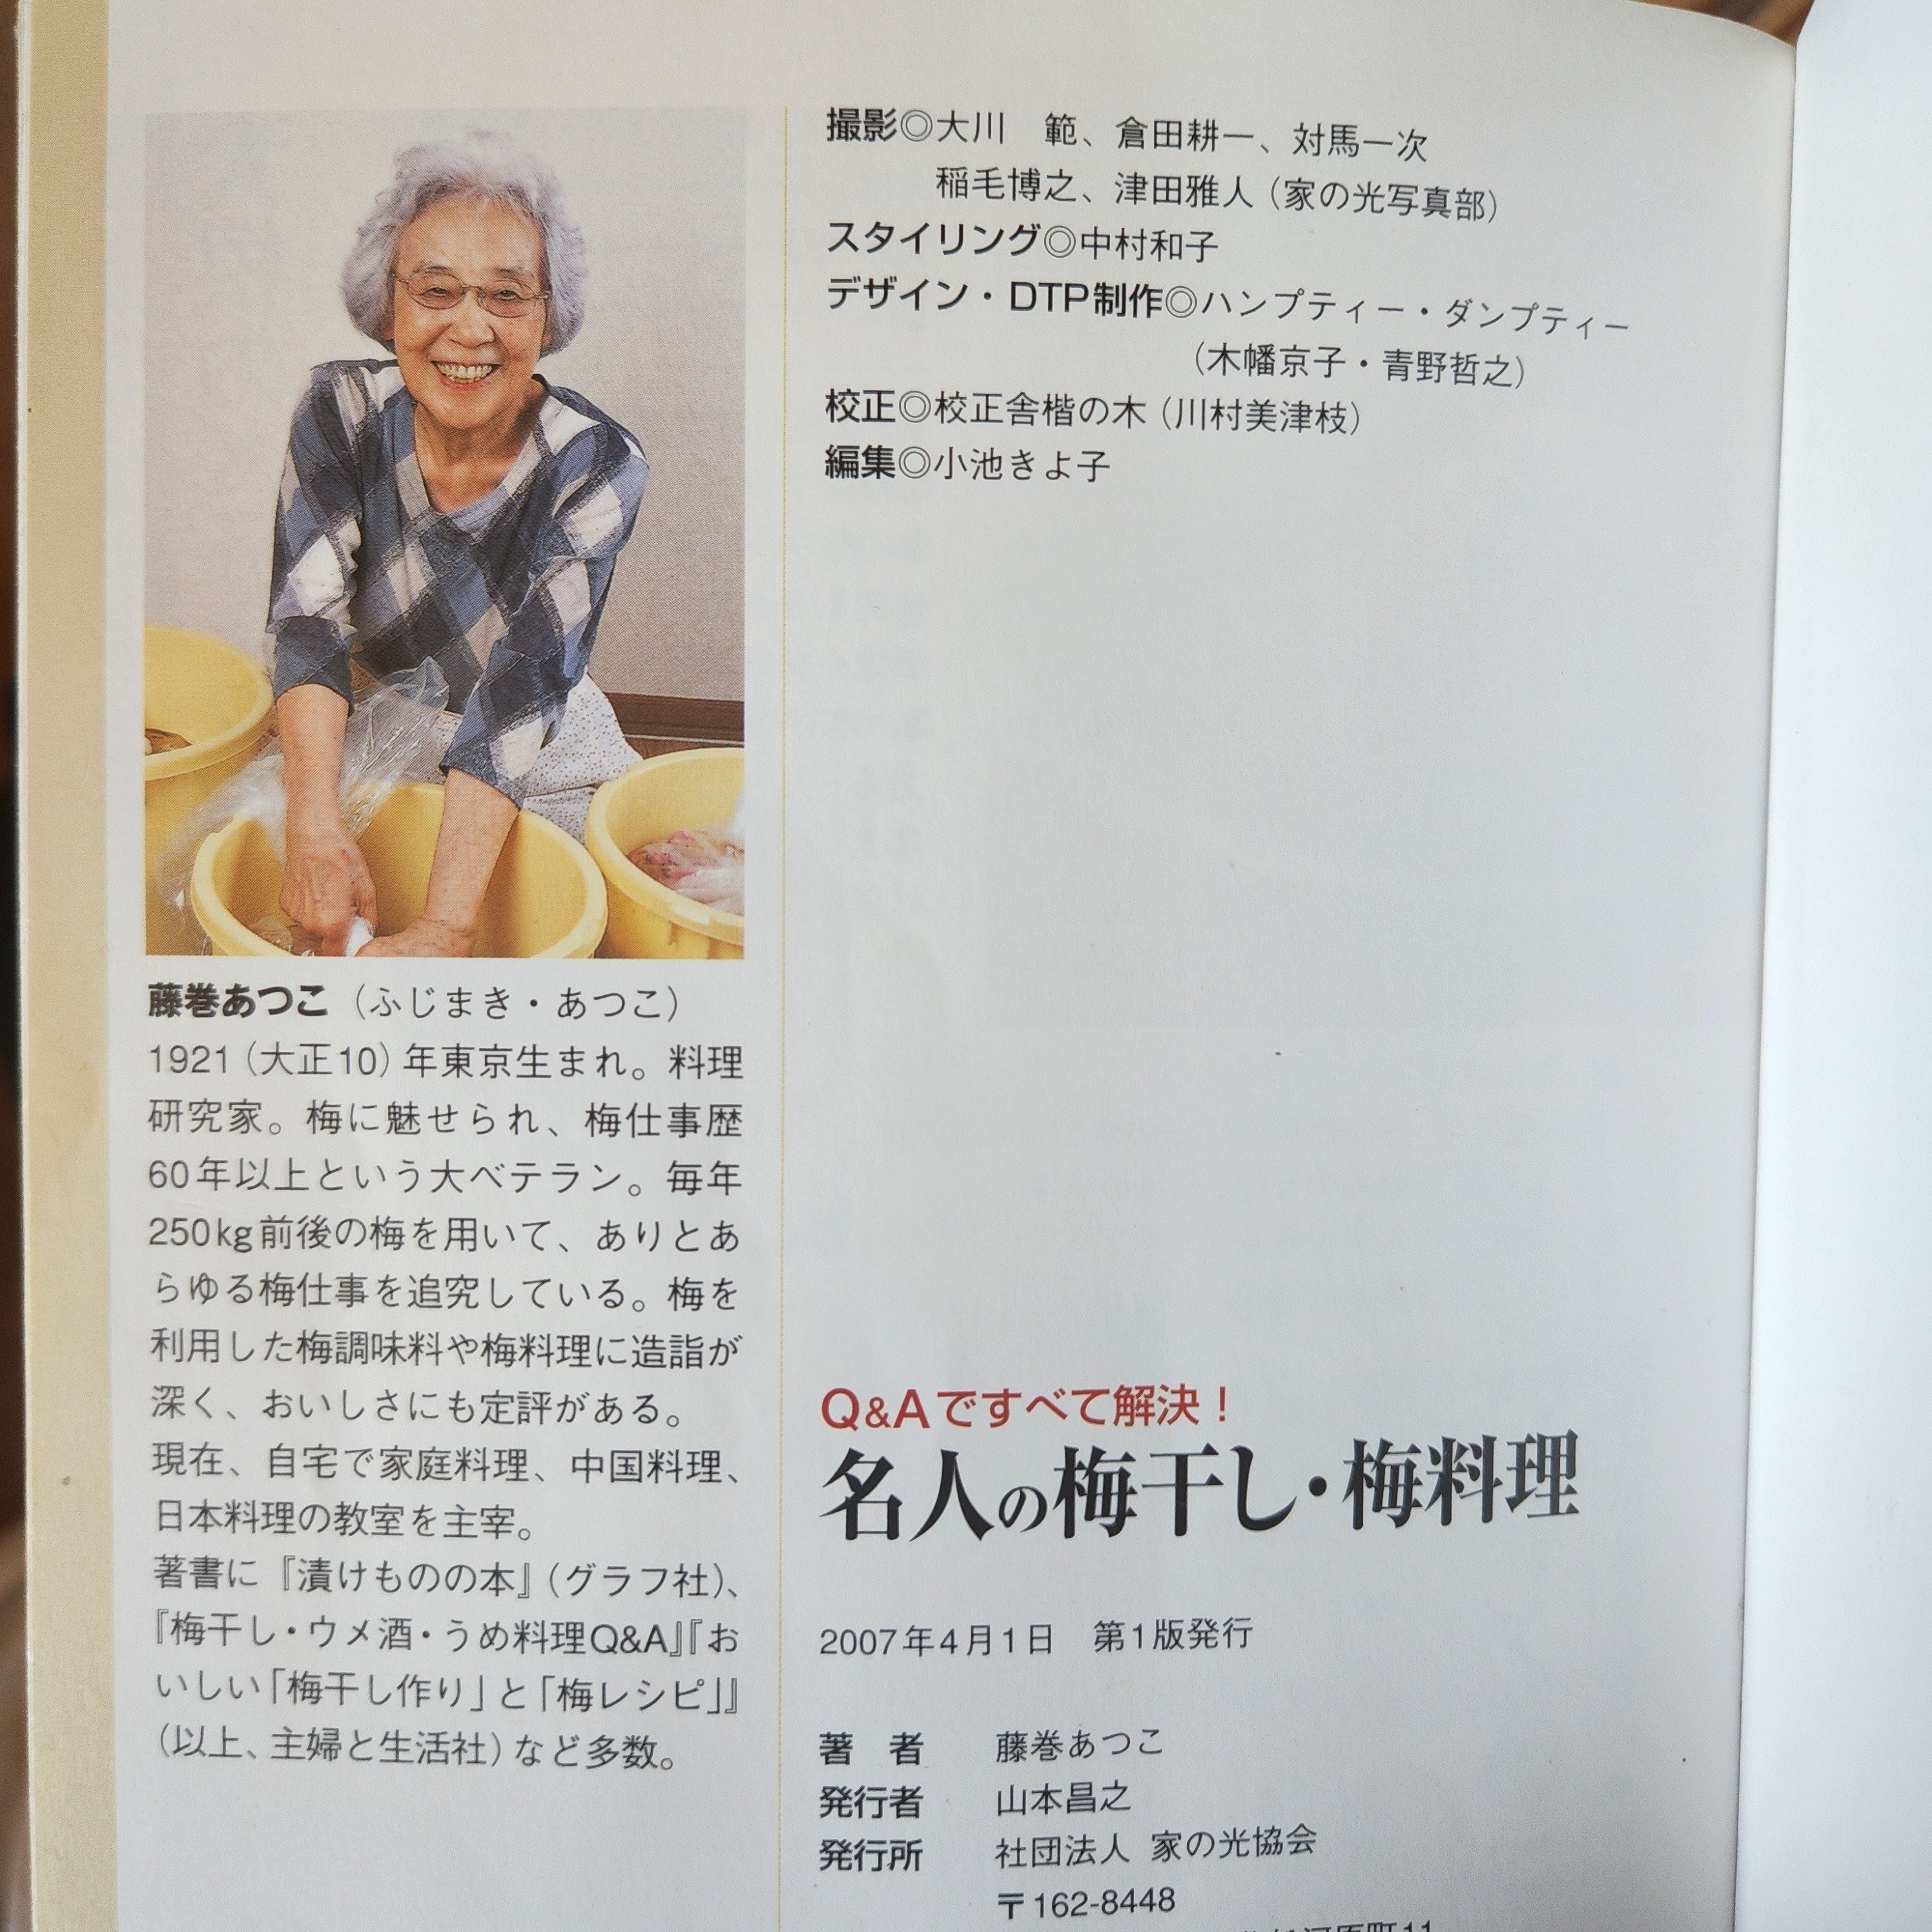 藤巻あつこ（ふじまき・あつこ）
1921（大正10）年東京生まれ。料理
研究家。梅に魅せられ、梅仕事歴
60年以上という大ベテラン。毎年
250kg前後の梅を用いて、ありとあ
らゆる梅仕事を追究している。梅を
利用した梅調味料や梅料理に造詣が
深く、おいしさにも定評がある。
現在、自宅で家庭料理、中国料理、
日本料理の教室を主宰。
著書に『漬けものの本』（グラフ社）、
『梅干し・ウメ酒・うめ料理Q&A』『お
いしい「梅干し作り」と「梅レシピ」』
（以上、主婦と生活社）など多数。
撮影◎大川　範、倉田耕一、対馬一次
稲毛博之、津田雅人（家の光写真部）
スタイリング◎中村和子
デザイン・DTP制作◎ハンプティー・ダンプティー
（木幡京子・青野哲之）
校正◎校正舎楷の木（川村美津枝）
編集◎小池きよ子
Q&Aですべて解決！
名人の梅干し・梅料理
2007年4月1日　第1版発行
著　者　藤巻あつこ
発行者　山本昌之
発行所　社団法人 家の光協会
〒162-8448
河原町11